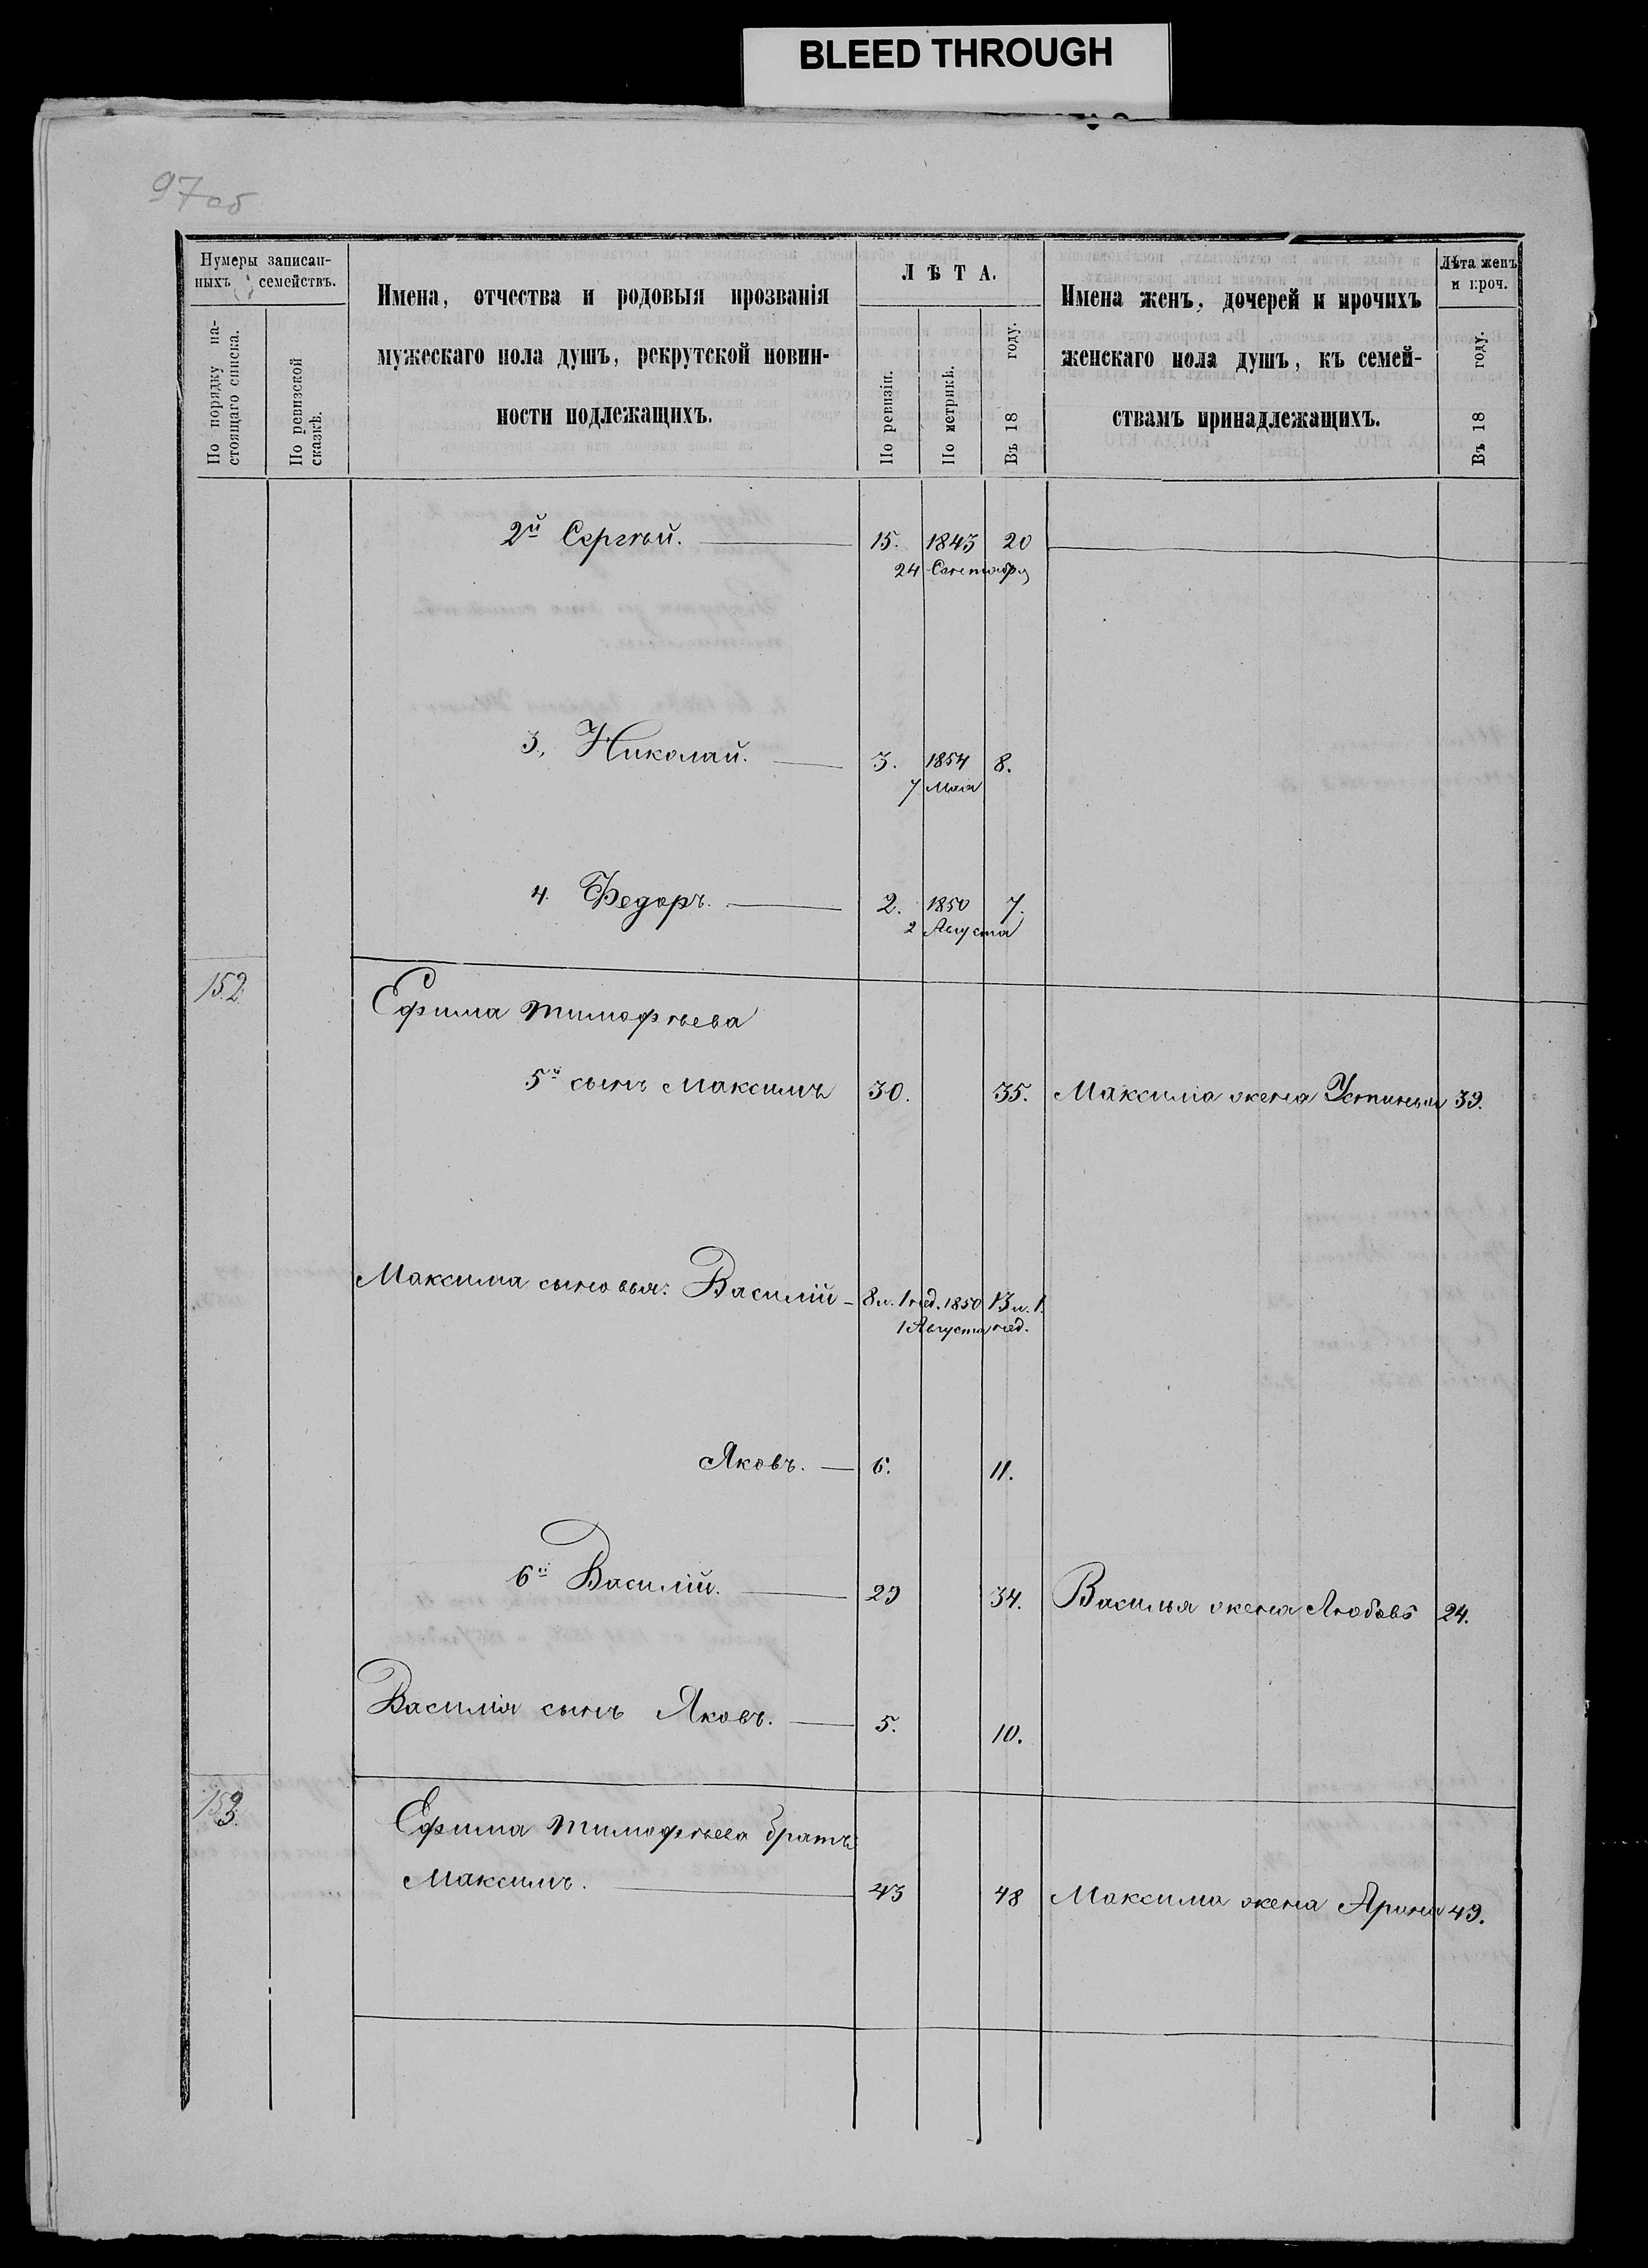 BLEED THROUGH
97 об
Нумеры записан-
ныхъ семействъ.
По порядку на-
стоящаго списка.
По ревизской
сказкѣ.
Имена, отчества и родовыя прозванія
мужескаго пола душъ, рекрутской повин-
ности подлежащихъ.
ЛѢТА.
По ревизіи.
По метрикѣ.
Въ 18 году.
Имена женъ, дочерей и прочихъ
женскаго пола душъ, къ семей-
ствамъ принадлежащихъ.
Лѣта женъ
и проч.
Въ 18 году.
2й Сергѣй. 15. 1843 20
24 Сентября
3. Николай. 3. 1854 8.
7 Мая
4. Федоръ. 2. 1850 7.
2 Августа
152.
Ефима Тимофѣева
5й сынъ Максимъ 30. 35. Максима жена Устинья 39.
Максима сыновья: Василій 8 л. 1 нед. 1850 13 л. 1
1 Августа нед.
Яковъ. 6. 11.
6й Василій. 29 34. Василья жена Любовь 24.
Василія сынъ Яковъ. 5. 10.
153.
Ефима Тимофѣева братъ
Максимъ. 43 48 Максима жена Арина 49.